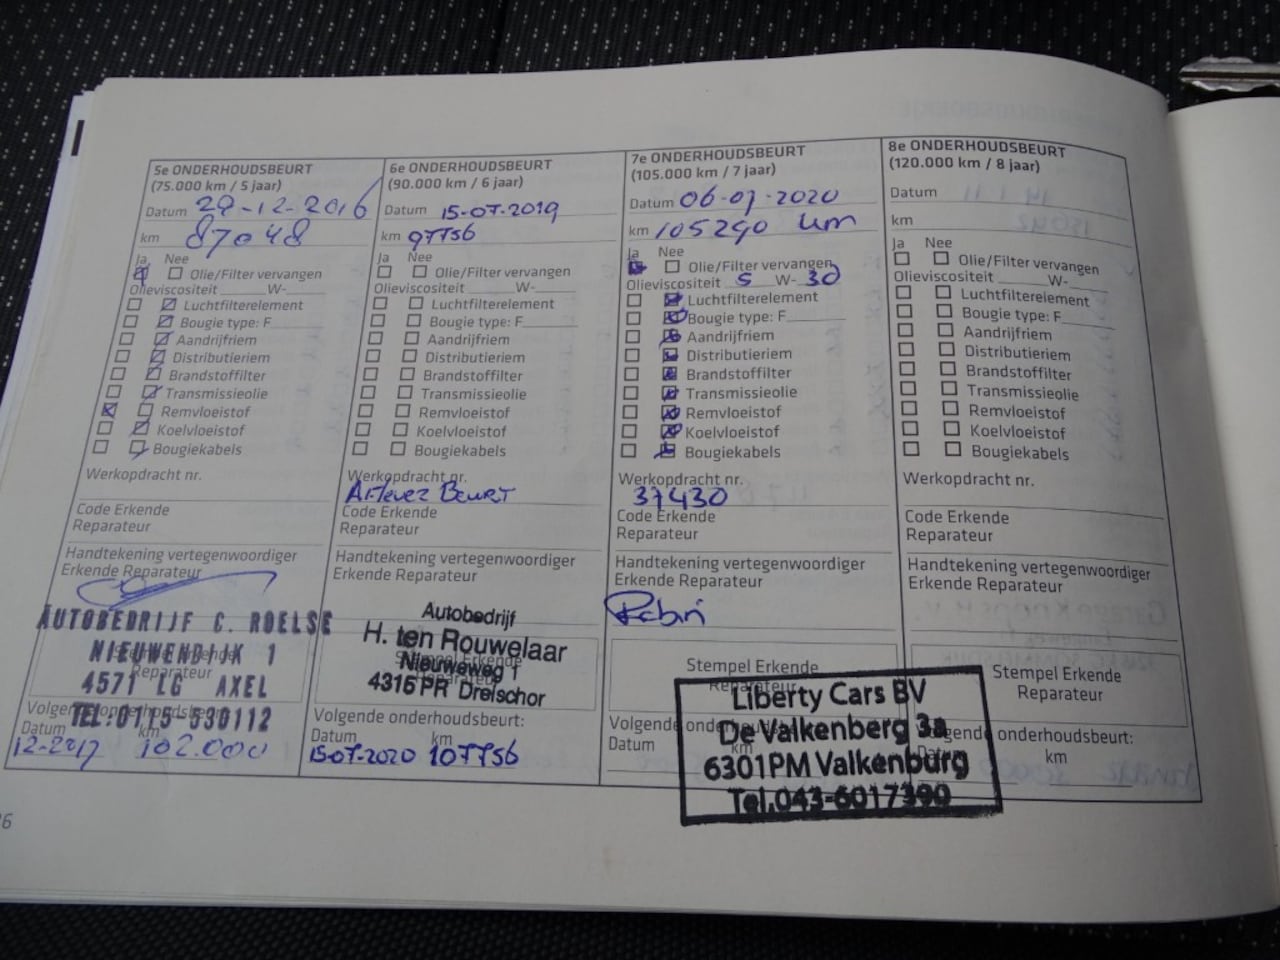 5e ONDERHOUDSBEURT
(75.000 km / 5 jaar)
Datum 29-12-2016
km 87048
Ja Nee
Olie/Filter vervangen
Olieviscositeit W-
Luchtfilterelement
Bougie type: F
Aandrijfriem
Distributieriem
Brandstoffilter
Transmissieolie
Remvloeistof
Koelvloeistof
Bougiekabels
Werkopdracht nr.
Code Erkende
Reparateur
Handtekening vertegenwoordiger
Erkende Reparateur
AUTOBEDRIJF C. ROELSE
NIEUWENDIJK 1
Reparateur
4571 LG AXEL
TEL:0115-530112
Datum km
12-2017 102.000
6e ONDERHOUDSBEURT
(90.000 km / 6 jaar)
Datum 15-07-2019
km 97756
Ja Nee
Olie/Filter vervangen
Olieviscositeit W-
Luchtfilterelement
Bougie type: F
Aandrijfriem
Distributieriem
Brandstoffilter
Transmissieolie
Remvloeistof
Koelvloeistof
Bougiekabels
Werkopdracht nr.
Beurt
Code Erkende
Reparateur
Handtekening vertegenwoordiger
Erkende Reparateur
Autobedrijf
H. ten Rouwelaar
Stempel Erkende
Nieuweweg 1
Reparateur
4316 PR Dreischor
Volgende onderhoudsbeurt:
Datum km
15-07-2020 107756
7e ONDERHOUDSBEURT
(105.000 km / 7 jaar)
Datum 06-07-2020
km 105290 km
Ja Nee
Olie/Filter vervangen
Olieviscositeit 5 W-30
Luchtfilterelement
Bougie type: F
Aandrijfriem
Distributieriem
Brandstoffilter
Transmissieolie
Remvloeistof
Koelvloeistof
Bougiekabels
Werkopdracht nr.
37430
Code Erkende
Reparateur
Handtekening vertegenwoordiger
Erkende Reparateur
Robin
Stempel Erkende
Reparateur
Liberty Cars BV
Volgende onderhoudsbeurt:
De Valkenberg 3a
Datum km
6301PM Valkenburg
Tel.043-6017390
8e ONDERHOUDSBEURT
(120.000 km / 8 jaar)
Datum
km
Ja Nee
Olie/Filter vervangen
Olieviscositeit W-
Luchtfilterelement
Bougie type: F
Aandrijfriem
Distributieriem
Brandstoffilter
Transmissieolie
Remvloeistof
Koelvloeistof
Bougiekabels
Werkopdracht nr.
Code Erkende
Reparateur
Handtekening vertegenwoordiger
Erkende Reparateur
Stempel Erkende
Reparateur
Volgende onderhoudsbeurt:
Datum km